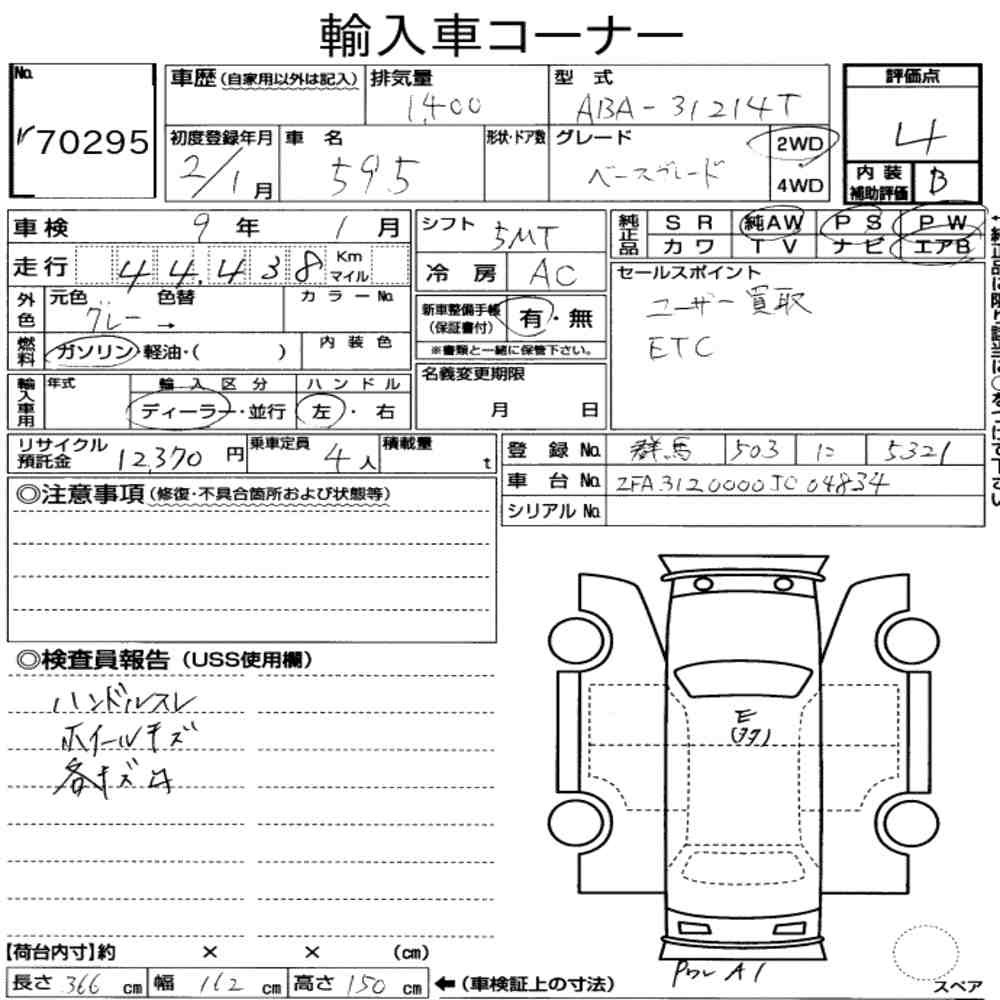 輸入車コーナー
No.
70295
車歴（自家用以外は記入）
排気量
1,400
型式
ABA-31214T
評価点
4
初度登録年月
2/1月
車名
595
形状・ドア数
グレード
ベースグレード
2WD
4WD
内装補助評価
B
車検 9年 1月
シフト
5MT
純正品
SR 純AW PS PW
カワ TV ナビ エアB
走行 44,438 Km マイル
冷房 AC
セールスポイント
ユーザー買取
ETC
外色
元色 色替
グレー →
カラーNo.
新車整備手帳
（保証書付）
有・無
※書類と一緒に保管下さい。
燃料
ガソリン・軽油・（ ）
内装色
名義変更期限
月 日
輸入車用
年式
輸入区分
ハンドル
ディーラー・並行
左・右
リサイクル預託金 12,370円
乗車定員 4人
積載量 t
登録No. 群馬 503 に 5321
車台No. ZFA3120000JC04834
シリアルNo.
◎注意事項（修復・不具合箇所および状態等）
◎検査員報告（USS使用欄）
ハンドルスレ
ホイールキズ
各キズ凹
E
A1
【荷台内寸】約 × × （cm）
長さ 366 cm 幅 162 cm 高さ 150 cm ←（車検証上の寸法）
スペア